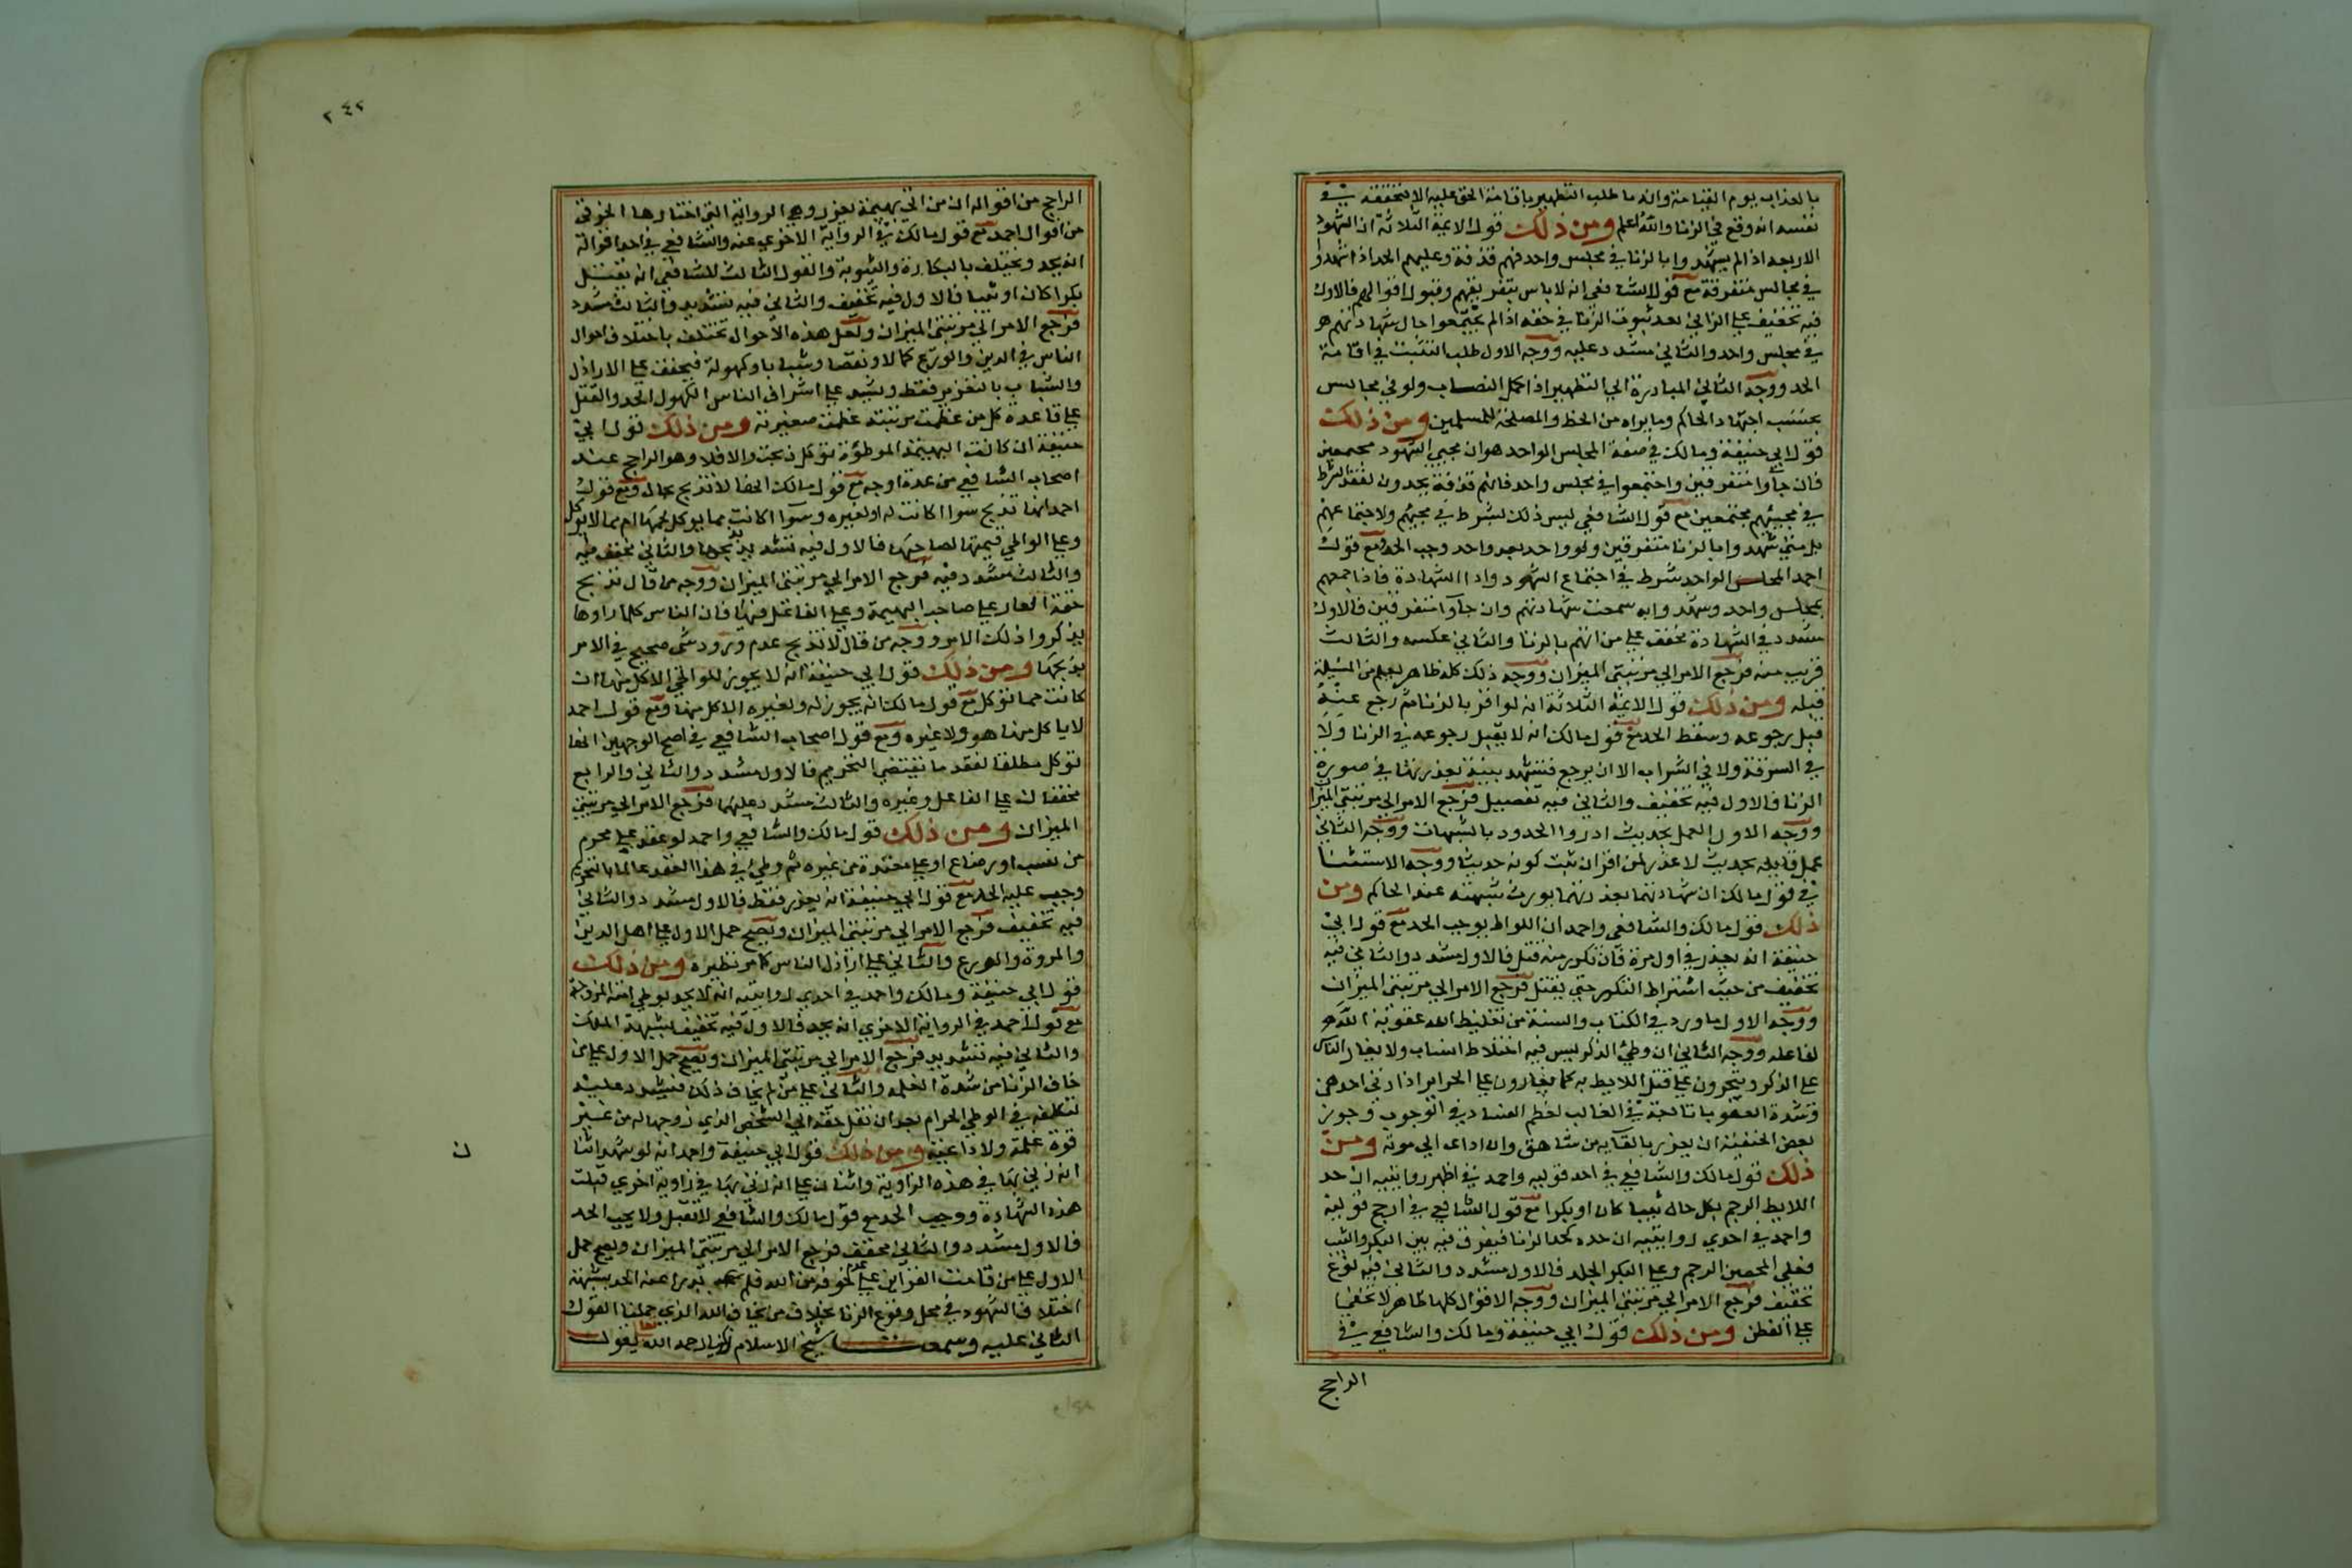 بالعذاب يوم القيامة وانه ما طلب التطهير باقامة الحق عليه الا لتحققه في
نفسه انه وقع في الزنا والله اعلم ومن ذلك قول الايمة الثلاثة ان الشهود
الاربعة اذا لم يشهدوا بالزنا في مجلس واحد فهم قذفة وعليهم الحد اذا شهدوا
في مجالس متفرقة مع قول الشافعي انه لا باس بتفريقهم وقبول اقوالهم فالاول
فيه تخفيف علي الزاني بعد ثبوت الزنا في حقه اذا لم يجتمعوا حال شهادتهم هو
في مجلس واحد والثاني مشدد عليه ووجه الاول طلب التثبت في اقامة
الحد ووجه الثاني المبادرة الي التطهير اذا كمل النصاب ولو في مجالس
بحسب اجتهاد الحاكم وما يراه من الحظ والمصلحة للمسلمين ومن ذلك
قول ابي حنيفة ومالك في صفة المجلس الواحد هو ان مجيي الشهود مجتمعين
فان جاوا متفرقين واجتمعوا في مجلس واحد فانهم قذفة يحدون لفقد شرط
في مجيئهم مجتمعين مع قول الشافعي ليس ذلك بشرط في مجيئهم ولا اجتماعهم
بل متي شهدوا بالزنا متفرقين ولو واحد بعد واحد وجب الحد ومع قول
احمد المجلس الواحد شرط في اجتماع الشهود واداا الشهادة فاذا جمعهم
مجلس واحد وشهدوا به سمعت شهادتهم وان جاوا متفرقين فالاول
مشدد في الشهادة مخفف علي من اتهم بالزنا والثاني عكسه والثالث
قريب منه فرجع الامر الي مرتبتي الميزان ووجه ذلك كله ظاهر يعلم من المسيلة
قبله ومن ذلك قول الايمة الثلاثة انه لو اقر بالزنا ثم رجع عنه
قبل رجوعه وسقط الحد مع قول مالك انه لا يقبل رجوعه في الزنا ولا
في السرقة ولا في الشراب الا ان يرجع فتشهد بينة تعذر بها في صورة
الزنا فالاول فيه تخفيف والثاني فيه تفصيل فرجع الامر الي مرتبتي الميزان
ووجه الاول العمل بحديث ادروا الحدود بالشبهات ووجه الثاني
عمل قايله بحديث لا عذر لمن اقر ان ثبت كونه حديثا ووجه الاستثنا
في قول مالك ان شهادتهما بعذرتهما يورث شبهته عند الحاكم ومن
ذلك قول مالك والشافعي واحمد ان اللواط يوجب الحد مع قول ابي
حنيفة انه يعذر في اول مرة فان تكرر منه قتل فالاول مشدد والثاني فيه
تخفيف من حيث اشتراط التكرر حتي يقتل فرجع الامر الي مرتبتي الميزان
ووجه الاول ما ورد في الكتاب والسنة من تغليظ الله عقوبة اللايط
لفاعله ووجه الثاني ان وطئ الذكر ليس فيه اختلاط انساب ولا يغار الناس
علي الذكر ويتجرون علي قتل اللايط به كما يغارون علي الحراير اذا زني احد بهن
وشدة العقوبات تابعة في الغالب لعظم الفساد في الوجوب وجوز
بعض الحنفية ان يعزر بالقايه من شاهق وان اداه الي موته ومن
ذلك قول مالك والشافعي في احد قوليه واحمد في اظهر روايتيه ان حد
اللايط الرجم بكل حال ثيبا كان او بكرا مع قول الشافعي في ارجح قوليه
واحمد في احدي روايتيه ان حده كحد الزنا فيفرق فيه بين البكر والثيب
فعلي المحصن الرجم وعلي البكر الجلد فالاول مشدد والثاني فيه نوع
تخفيف فرجع الامر الي مرتبتي الميزان ووجه الاقوال كلها ظاهر لا تخفي
علي الفطن ومن ذلك قول ابي حنيفة ومالك والشافعي في
الراجح
٢٤٢
الراجح من اقواله ان من اتي بهيمة يعزر وهي الرواية التي اختارها الخرقي
من اقوال احمد مع قول مالك في الرواية الاخري عنه والشافعي في احد اقواله
انه يحد ويختلف بالبكارة والثيوبة والقول الثالث للشافعي انه يقتل
بكرا كان او ثيبا فالاول فيه تخفيف والثاني فيه تشديد والثالث مشدد
فرجع الامر الي مرتبتي الميزان ولعل هذه الاحوال تختلف باختلاف احوال
الناس في الدين والورع كمالا ونقصا وشبابا وكهولة فيخفف علي الاراذل
والشباب بالتعزير فقط ويشدد علي اشراف الناس الكهول الحد والقتل
علي قاعدة كل من عظمت مرتبته عظمت صغيرته ومن ذلك قول ابي
حنيفة ان كانت البهيمة الموطوة توكل ذبحت والا فلا وهو الراجح عند
اصحاب الشافعي من عدة اوجه مع قول مالك انها لا تذبح بحال ومع قول
احمد انها تذبح سوا اكانت له او لغيره وسوا اكانت مما يوكل لحمها ام مما لا يوكل
وعلي الواطي قيمتها لصاحبها فالاول فيه تشديد بذبحها والثاني مخفف فيه
والثالث مشدد فيه فرجع الامر الي مرتبتي الميزان ووجه من قال تذبح
خفة العار علي صاحب البهيمة وعلي الفاعل فيها فان الناس كلما راوها
يذكروا ذلك الامر ووجه من قال لا تذبح عدم ورود شي صحيح في الامر
بذبحها ومن ذلك قول ابي حنيفة انه لا يجوز للواطي الاكل منها ان
كانت مما توكل مع قول مالك انه يجوز له ولغيره الاكل منها ومع قول احمد
لا ياكل منها هو ولا غيره ومع قول اصحاب الشافعي في اصح الوجهين انها
توكل مطلقا لفقد ما يقتضي التحريم فالاول مشدد والثاني والرابع
مخففان علي الفاعل وغيره والثالث مشدد عليهما فرجع الامر الي مرتبتي
الميزان ومن ذلك قول مالك والشافعي واحمد لو عقد علي محرم
من نسب او رضاع او علي معتدة من غيره ثم وطئ في هذا العقد عالما بالتحريم
وجب عليه الحد مع قول ابي حنيفة انه يعزر فقط فالاول مشدد والثاني
فيه تخفيف فرجع الامر الي مرتبتي الميزان ويصح حمل الاول علي اهل الدين
والمروة والورع والثاني علي اراذل الناس كما مر نظيره ومن ذلك
قول ابي حنيفة ومالك واحمد في احدي روايتيه انه لا يحد بوطي امته المزوجة
مع قول احمد في الرواية الاخري انه يحد فالاول فيه تخفيف بشبهة الملك
والثاني فيه تشديد فرجع الامر الي مرتبتي الميزان ويصح حمل الاول علي من
خاف الزنا من شدة الغلمة والثاني علي من لم يخاف ذلك فيشدد عليه
لتكلفه في الوطي الحرام بعد ان نقل حقه الي الشخص الذي زوجها له من غير
قوة غلمة ولا داعية ومن ذلك قول ابي حنيفة واحمد انه لو شهد اثنان
ن
انه زني بها في هذه الزاوية واثنان علي انه زني بها في زاوية اخري قبلت
هذه الشهادة ووجب الحد مع قول مالك والشافعي لا تقبل ولا يجب الحد
فالاول مشدد والثاني مخفف فرجع الامر الي مرتبتي الميزان ويصح حمل
الاول علي من قامت القراين علي عدم خوفه من الله فلم يدرا عنه الحد بشبهة
اختلاف الشهود في محل وقوع الزنا بخلاف من يخاف الله الذي حملنا القول
الثاني عليه وسمعت شيخ الاسلام زكريا رحمه الله تعالي يقول